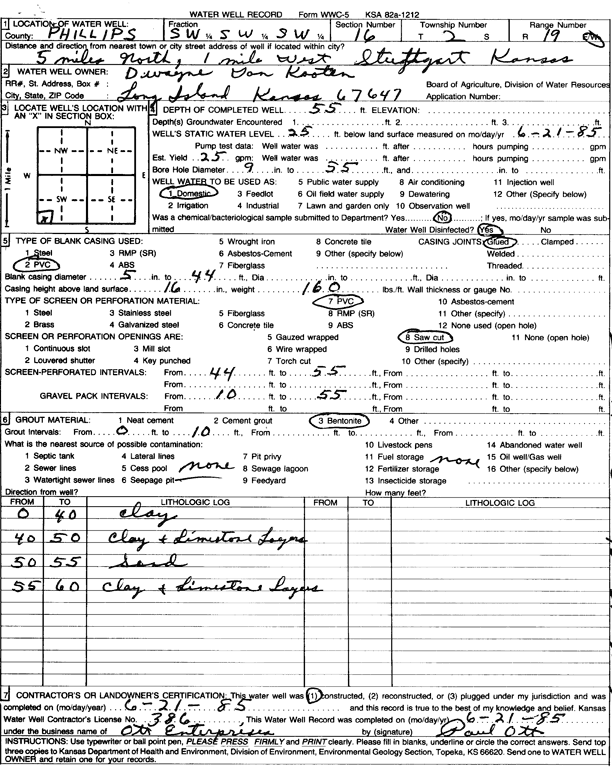 WATER WELL RECORD Form WWC-5 KSA 82a-1212
1 LOCATION OF WATER WELL: Fraction Section Number Township Number Range Number
County: PHILLIPS SW ¼ SW ¼ SW ¼ 16 T 2 S R 19 E/W
Distance and direction from nearest town or city street address of well if located within city?
5 miles North, 1 mile West Stuttgart Kansas
2 WATER WELL OWNER: Dwayne Van Kooten
RR#, St. Address, Box # : Board of Agriculture, Division of Water Resources
City, State, ZIP Code : Long Island Kansas 67647 Application Number:
3 LOCATE WELL'S LOCATION WITH AN "X" IN SECTION BOX:
N
NW NE
W E
SW SE
X
S
1 Mile
4 DEPTH OF COMPLETED WELL 55 ft. ELEVATION:
Depth(s) Groundwater Encountered 1. ft. 2. ft. 3. ft.
WELL'S STATIC WATER LEVEL 25 ft. below land surface measured on mo/day/yr 6-21-85
Pump test data: Well water was ft. after hours pumping gpm
Est. Yield 25 gpm: Well water was ft. after hours pumping gpm
Bore Hole Diameter 9 in. to 55 ft., and in. to ft.
WELL WATER TO BE USED AS: 5 Public water supply 8 Air conditioning 11 Injection well
1 Domestic 3 Feedlot 6 Oil field water supply 9 Dewatering 12 Other (Specify below)
2 Irrigation 4 Industrial 7 Lawn and garden only 10 Observation well
Was a chemical/bacteriological sample submitted to Department? Yes No ; If yes, mo/day/yr sample was sub-
mitted Water Well Disinfected? Yes No
5 TYPE OF BLANK CASING USED: 5 Wrought iron 8 Concrete tile CASING JOINTS: Glued Clamped
1 Steel 3 RMP (SR) 6 Asbestos-Cement 9 Other (specify below) Welded
2 PVC 4 ABS 7 Fiberglass Threaded
Blank casing diameter 5 in. to 44 ft., Dia in. to ft., Dia in. to ft.
Casing height above land surface 16 in., weight 160 lbs./ft. Wall thickness or gauge No.
TYPE OF SCREEN OR PERFORATION MATERIAL: 7 PVC 10 Asbestos-cement
1 Steel 3 Stainless steel 5 Fiberglass 8 RMP (SR) 11 Other (specify)
2 Brass 4 Galvanized steel 6 Concrete tile 9 ABS 12 None used (open hole)
SCREEN OR PERFORATION OPENINGS ARE: 5 Gauzed wrapped 8 Saw cut 11 None (open hole)
1 Continuous slot 3 Mill slot 6 Wire wrapped 9 Drilled holes
2 Louvered shutter 4 Key punched 7 Torch cut 10 Other (specify)
SCREEN-PERFORATED INTERVALS: From 44 ft. to 55 ft., From ft. to ft.
From ft. to ft., From ft. to ft.
GRAVEL PACK INTERVALS: From 10 ft. to 55 ft., From ft. to ft.
From ft. to ft., From ft. to ft.
6 GROUT MATERIAL: 1 Neat cement 2 Cement grout 3 Bentonite 4 Other
Grout Intervals: From 0 ft. to 10 ft., From ft. to ft., From ft. to ft.
What is the nearest source of possible contamination: 10 Livestock pens 14 Abandoned water well
1 Septic tank 4 Lateral lines 7 Pit privy 11 Fuel storage none 15 Oil well/Gas well
2 Sewer lines 5 Cess pool none 8 Sewage lagoon 12 Fertilizer storage 16 Other (specify below)
3 Watertight sewer lines 6 Seepage pit 9 Feedyard 13 Insecticide storage
Direction from well? How many feet?
FROM TO LITHOLOGIC LOG FROM TO LITHOLOGIC LOG
0 40 Clay
40 50 Clay + Limestone Layers
50 55 Sand
55 60 Clay + Limestone Layers
7 CONTRACTOR'S OR LANDOWNER'S CERTIFICATION: This water well was (1) constructed, (2) reconstructed, or (3) plugged under my jurisdiction and was
completed on (mo/day/year) 6-21-85 and this record is true to the best of my knowledge and belief. Kansas
Water Well Contractor's License No. 386 This Water Well Record was completed on (mo/day/yr) 6-21-85
under the business name of Ott Enterprises by (signature) Paul Ott
INSTRUCTIONS: Use typewriter or ball point pen, PLEASE PRESS FIRMLY and PRINT clearly. Please fill in blanks, underline or circle the correct answers. Send top
three copies to Kansas Department of Health and Environment, Division of Environment, Environmental Geology Section, Topeka, KS 66620. Send one to WATER WELL
OWNER and retain one for your records.